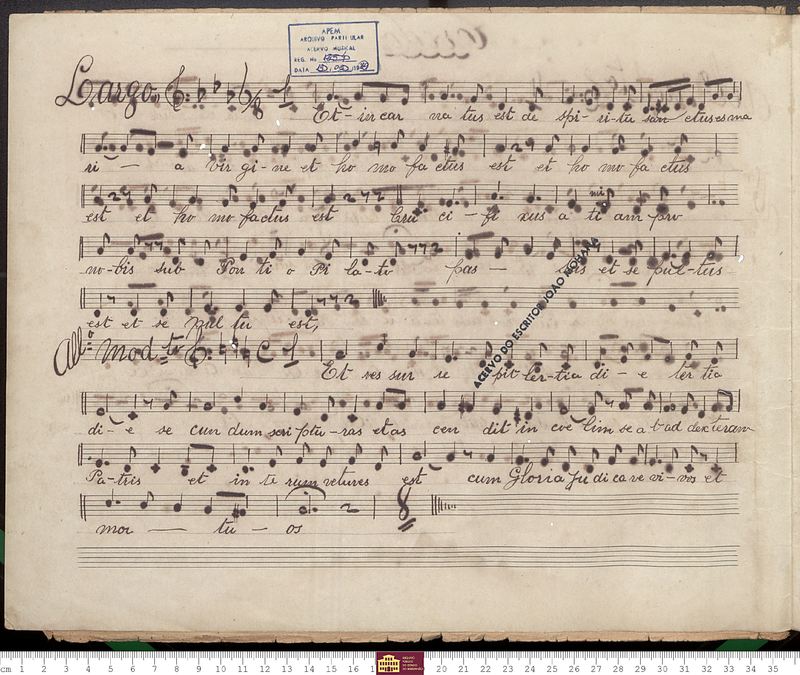 APEM
ARQUIVO PARTICULAR
ACERVO MUSICAL
REG. No
DATA
Largo
Et - in car na tus est de spi - ri - tu san ctus es ma
ri - a Vir gi - ne et ho mo fa ctus est et ho mo fa ctus
est et ho mo factus est Cru ci - fi xus a ti am pro
no - bis sub Pon ti o Pi la - to pas - sus et se pul - tus
est et se pul tu est,
All.º Mod.to C
Et res sur re pit ter - tia di - e ter tia
di - e se cun dum scri ptu - ras et as cen dit in coe lim se a b ad dexteram
Pa - tris et in te rum vetures est cum Gloria Ju di ca re vi - vos et
mor - tu - os
ACERVO DO ESCRITOR JOÃO MOHANA
cm 1 2 3 4 5 6 7 8 9 10 11 12 13 14 15 16 20 21 22 23 24 25 26 27 28 29 30 31 32 33 34 35